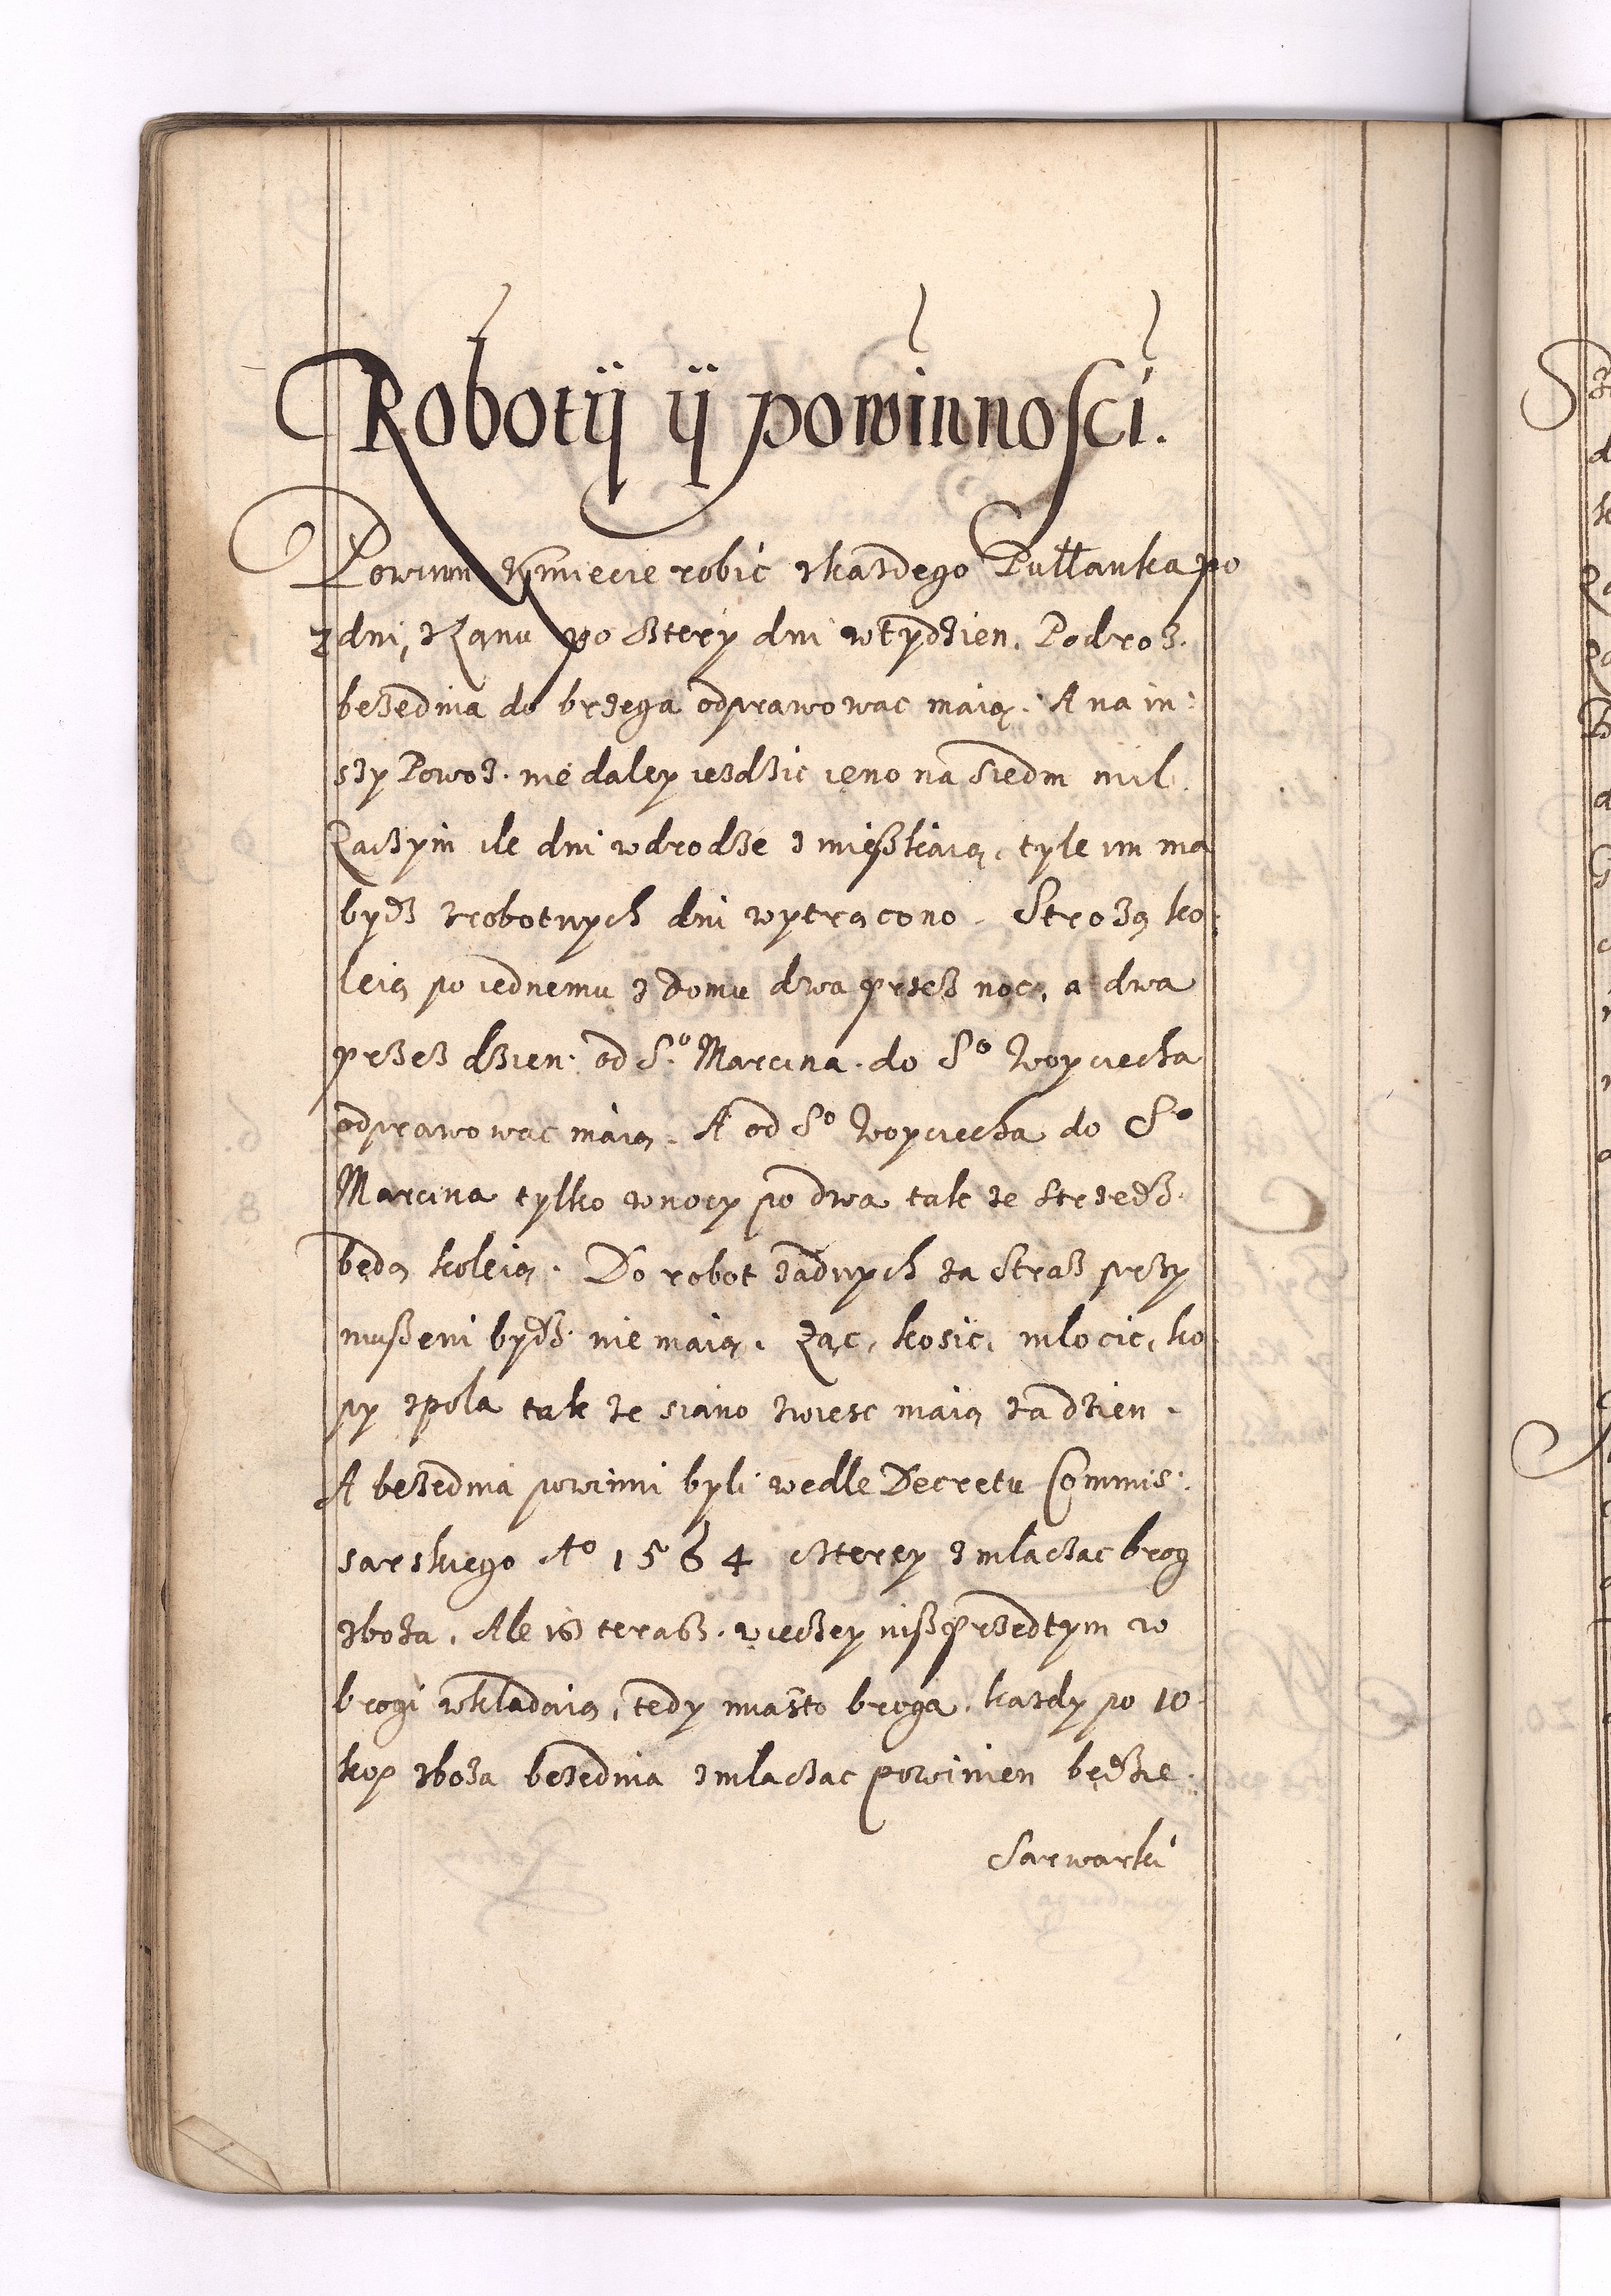 Robotÿ ÿ powinnosci.
Powinni Kmiecie robić zkazdego Pułłanka po
2 dni, zŁanu po cztery dni wtydzien. Podroz.
bezednia do brzega odprawowac maią. A na in:
szy Powoz. nie daley iezdzic ieno na siedm mil.
Zaczym ile dni wdrodze zmięszkaią, tyle im ma
bydz zrobotnych dni wytrącono. Strozą ko:
leią po iednemu z domu dwa przez noc, a dwa
przez dzien. od S.º Marcina. do Sº Woyciecha
odprawowac maią. A od Sº Woyciecha do Sº
Marcina tylko wnocy po dwa tak ze strzedz.
będą koleią. Do robot zadnych za straz przy
muszeni bydz nie maią. Ząc, kosic, mlocic, ko
py zpola tak ze siano zwiesc maią za dzien.
A bezednia powinni byli wedle Decretu Commis:
sarskiego Aº 1564 czterzy zmlaczac brog
zboza. Ale iz teraz. wieczey niz przedtym w
brogi wkladaią, tedy miasto broga. kazdy po 10
kop zboza bezednia zmlaczac powinien będzie.
Sarwarki